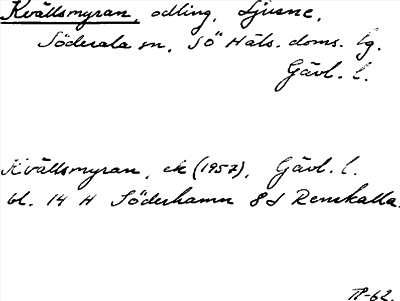 Kvällsmyran, odling, Ljusne,
Söderala sn, SÖ Häls. doms. tg.
Gävl. l.
Kvällsmyran, ek (1957), Gävl. l.
bl. 14 H Söderhamn 8d Renskalla.
-62.